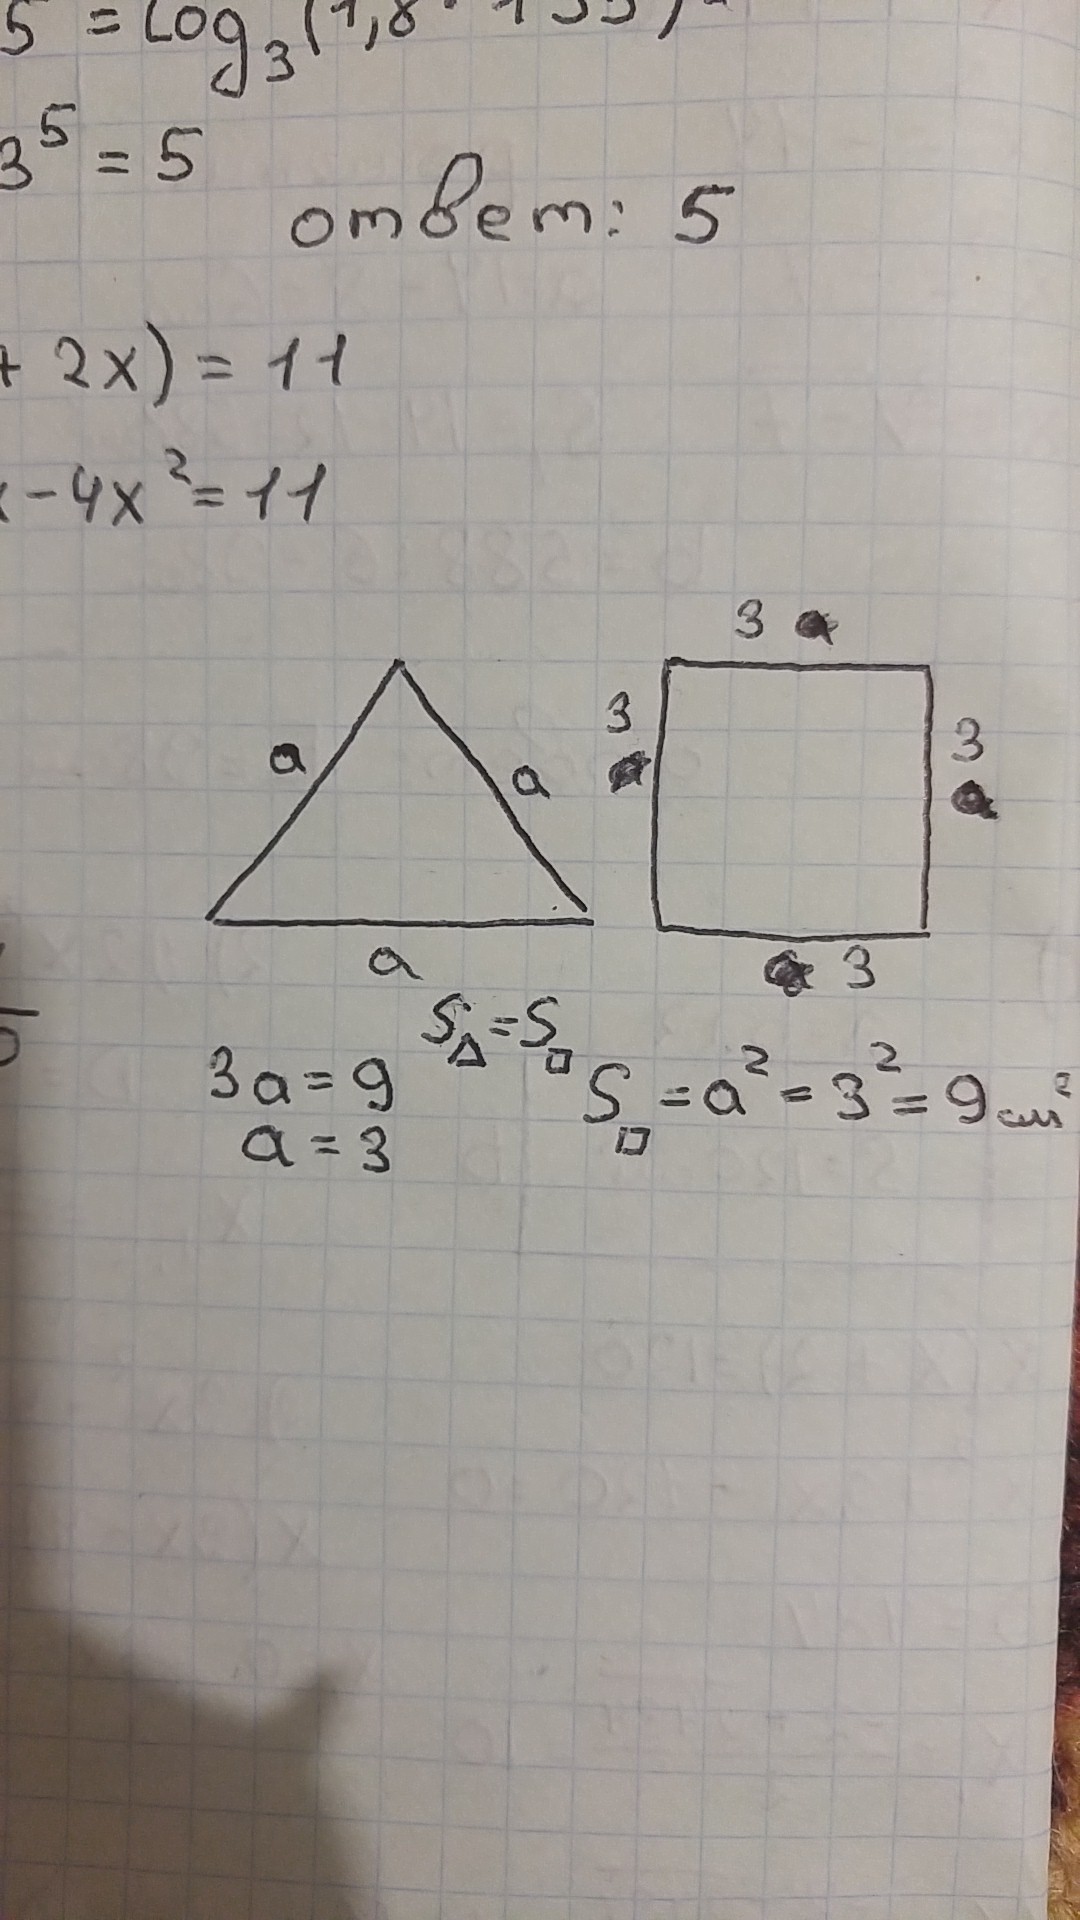 5 = log₃(1,8 · 135)
3⁵ = 5
ответ: 5
+ 2x) = 11
x - 4x² = 11
3
a 3 3
a
a 3
S△ = S□
3a = 9 S□ = a² = 3² = 9 см²
a = 3